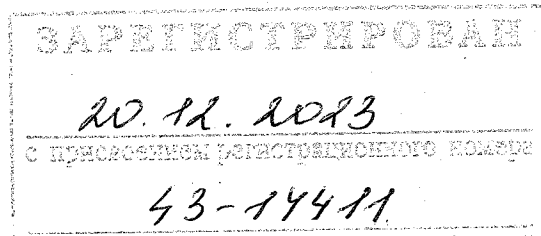 ЗАРЕГИСТРИРОВАН
20.12.2023
с присвоением регистрационного номера
43-14411